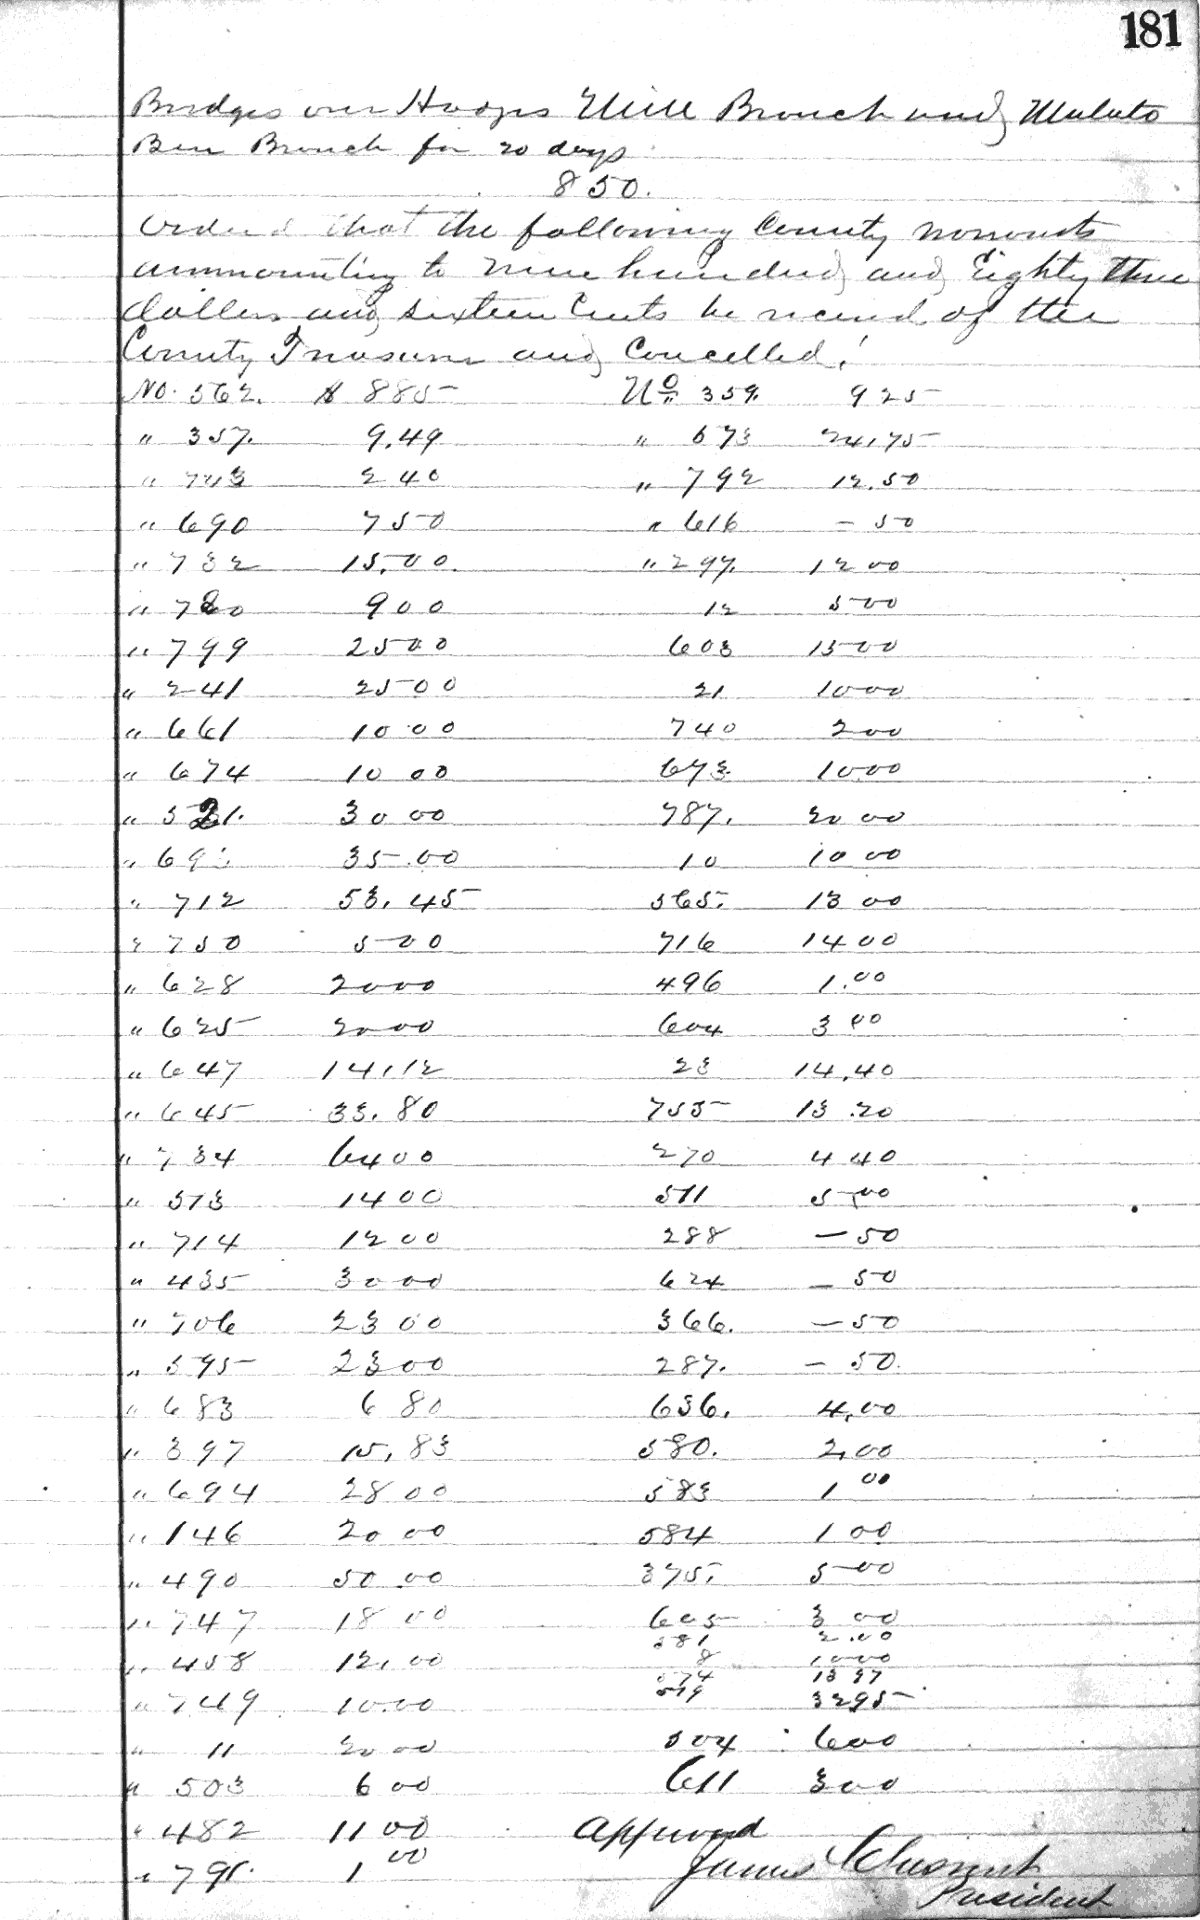 181
Bridges over Hoops Mill Branch and Mulato
Ben Branch for 20 days
850.
Ordered that the following County warrants
ammounting to nine hundred and Eighty three
dollars and sixteen Cents be received of the
County Treasurer and Cancelled.
No. 562. $ 885 No 359. 925
" 357. 9.49 " 673 24.75
" 743 240 " 792 12.50
" 690 750 " 616 - 50
" 732 15.00. " 297. 1200
" 780 900 12 500
" 799 2500 603 1500
" 241 2500 21 1000
" 661 1000 740 200
" 674 10 00 673 1000
" 521. 30 00 787. 20 00
" 69 35.00 10 10 00
" 712 53.45 565. 13 00
" 750 500 716 1400
" 628 2000 496 1.00
" 625 2000 604 3 00
" 647 14.12 23 14.40
" 645 33.80 755 13.20
" 734 6400 270 440
" 573 1400 511 5 00
" 714 1200 288 - 50
" 435 3000 624 - 50
" 706 2300 366. - 50
" 595 2300 287. - 50.
" 683 6 80 636. 4.00
" 397 15.83 580. 2.00
" 694 28 00 583 1 00
" 146 20 00 584 1 00
" 490 50.00 375. 500
" 747 18 00 605 3 00
581 2.00
" 458 12.00 8 1000
574 13 37
" 749 10.00 579 3295
" 11 20 00 504 600
" 503 6 00 611 300
" 482 11 00 Approved
" 791. 1 00 James Chesnut
President